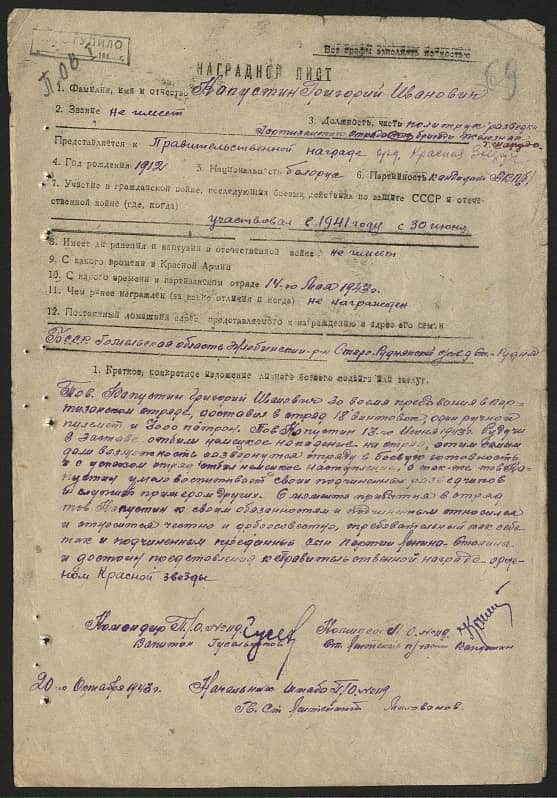 ПОСТУПИЛО
Все графы заполнять полностью
69
НАГРАДНОЙ ЛИСТ
1. Фамилия, имя и отчество Капустин Григорий Иванович
2. Звание не имеет
3. Должность, часть политрук разведки
Партизанский
Представляется к Правительственной награде орд. Красная Звезда
4. Год рождения 1912 5. Национальность белорус 6. Партийность кандидат ВКП/б/
7. Участие в гражданской войне, последующих боевых действиях по защите СССР и отече-
ственной войне (где, когда)
участвовал с 1941 году с 30 июня
8. Имеет ли ранения и контузии в отечественной войне не имеет
9. С какого времени в Красной Армии
10. С какого времени в партизанском отряде 14-го Мая 1943 г.
11. Чем ранее награжден (за какие отличия и когда) не награжден
12. Постоянный домашний адрес представляемого к награждению и адрес его семьи
БССР Гомельская область Жлобинский р-н Старо-Руднянский с/с д. Ст-Рудня
1. Краткое, конкретное изложение личного боевого подвига или заслуг.
Тов. Капустин Григорий Иванович за время пребывания в пар-
тизанском отряде, доставил в отряд 18 винтовок, один ручной
пулемет и 3000 патрон. Тов Капустин 13-го Июня 1943 г. Будучи
в заставе отбили немецкое нападение на отряд, этим самым
дали возможность развернутся отряду в боевую готовность
и с успехом отряд отбил немецкое наступление, а так-же тов Ка-
пустин умело воспитывает своих подчиненных разведчиков
и служит примером других. С момента прибытия в отряд
тов Капустин к своим обязанностям и подчиненным относился
и относится честно и добросовестно, требовательный как к себе
так и подчиненным преданный сын партии Ленина-Сталина
и достоин представления к Правительственной награде орде-
ном Красной звезды
Командир П/О. №119
Капитан
П/О. №119
Ст. Лейтенант
20-го Октября 1943 г. Начальник штаба П/О. №119
Гв. Ст. Лейтенант